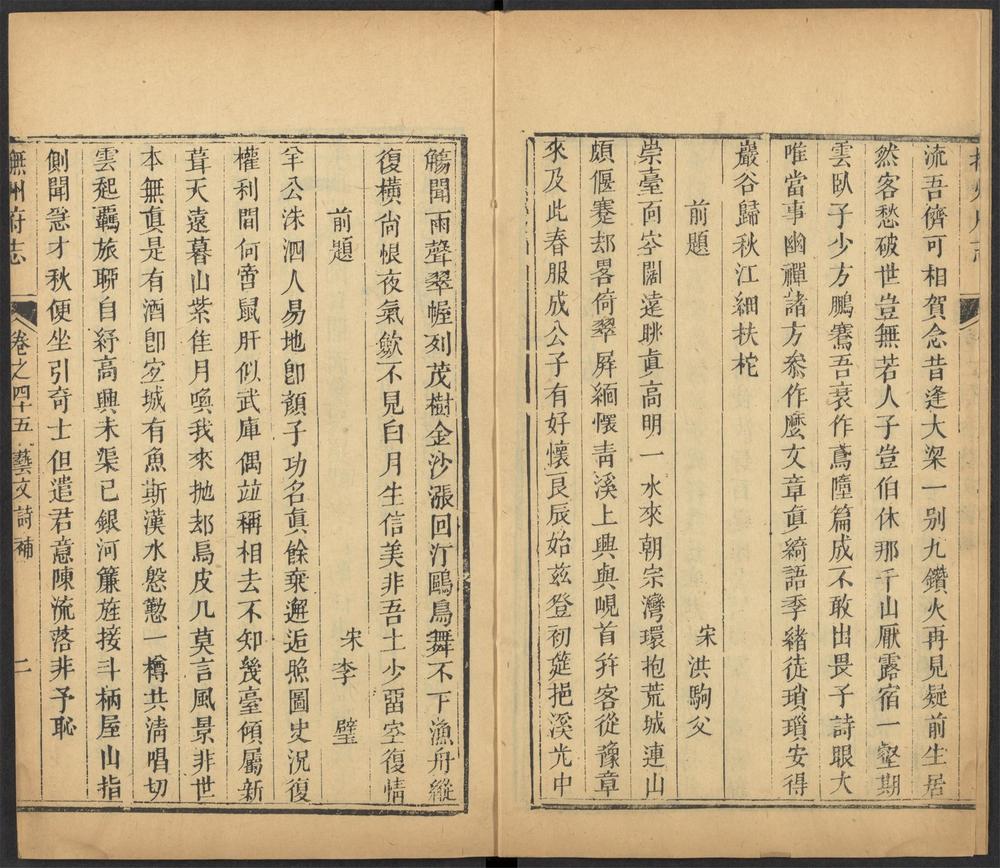 流吾儕可相賀念昔逢大梁一别九鑽火再見疑前生居
然客愁破世豈無若人子豈伯休那千山厭露宿一壑期
雲臥子少方鵬騫吾衰作蔫墮篇成不敢出畏子詩眼大
唯當事幽禪諸方叅作麼文章眞綺語季緒徒瑣瑣安得
巖谷歸秋江細扶柁
前題
宋洪駒父
崇臺面空闊遠眺眞高明一水來朝宗灣環抱荒城連山
頗偃蹇却畧倚翠屏緬懷靑溪上興與峴首幷客從豫章
來及此春服成公子有好懷艮辰始玆登初筵挹溪光中
觴聞雨聲翠幄列茂樹金沙漲回汀鷗鳥舞不下漁舟縱
復橫尙恨夜氣歛不見白月生信美非吾土少畱空復情
前題
宋李 璧
羊公洙泗人易地卽顏子功名眞餘棄邂逅照圖史況復
權利間何啻鼠肝似武庫偶竝稱相去不知幾臺傾屬新
葺天遠暮山紫隹月喚我來拋却烏皮几莫言風景非世
本無眞是有酒卽宓城有魚斯漢水慇懃一樽共淸唱切
雲起羈旅聊自紓高興未渠已銀河簾旌接斗柄屋山指
側聞急才秋便坐引奇士但遣君意陳流落非予恥
撫州府志
卷之四十五 藝文詩補
二